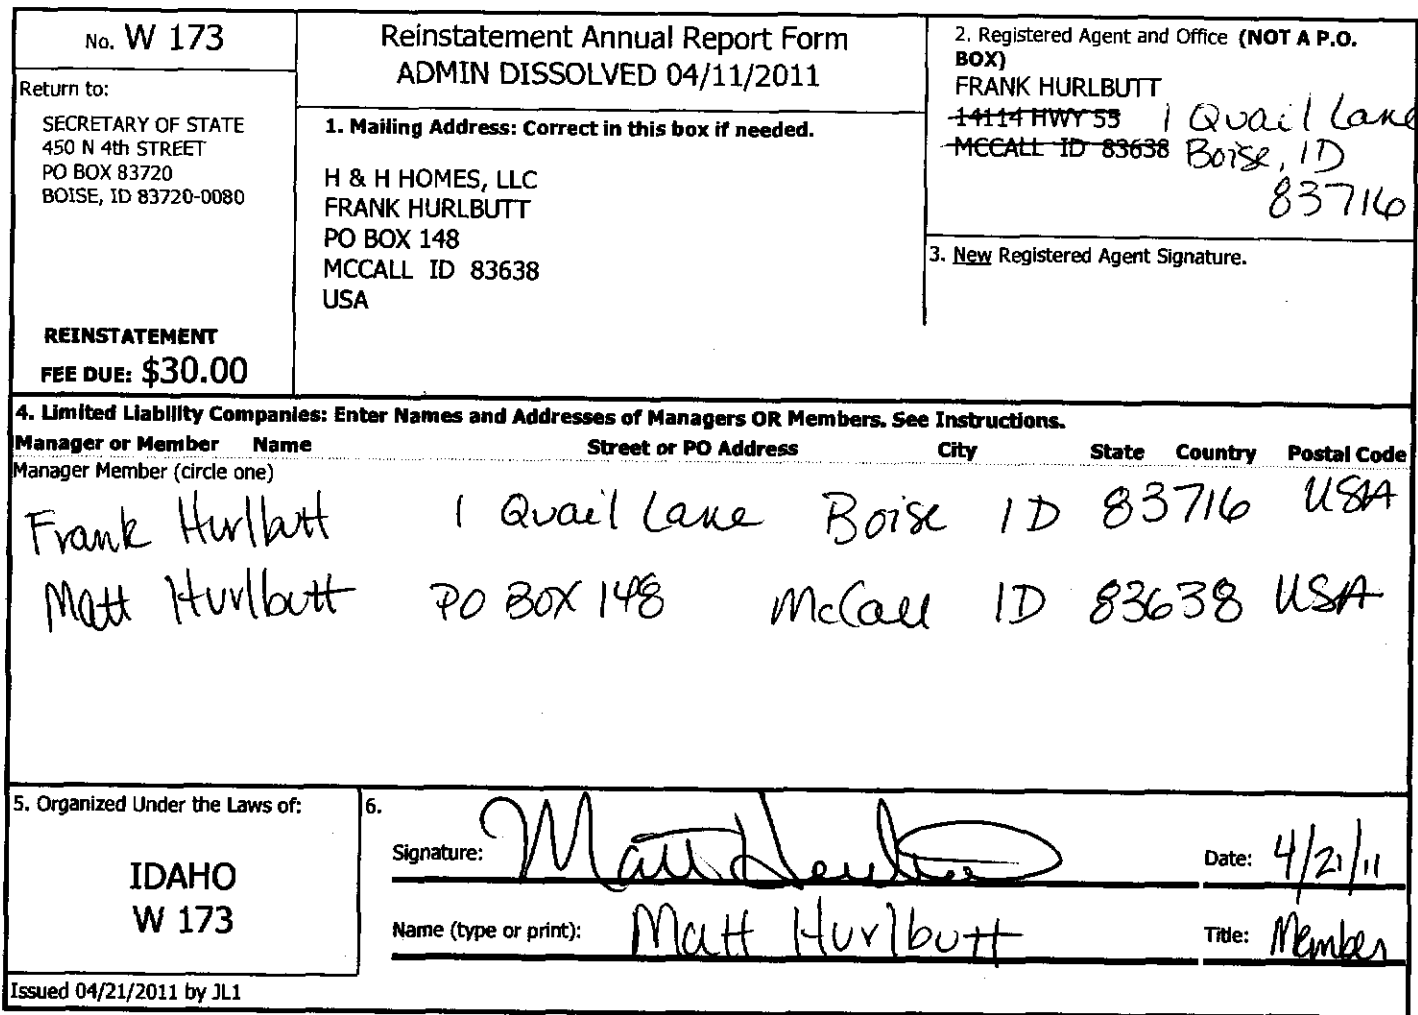 No. W 173
Return to:
SECRETARY OF STATE
450 N 4th STREET
PO BOX 83720
BOISE, ID 83720-0080
REINSTATEMENT
FEE DUE: $30.00
Reinstatement Annual Report Form
ADMIN DISSOLVED 04/11/2011
1. Mailing Address: Correct in this box if needed.
H & H HOMES, LLC
FRANK HURLBUTT
PO BOX 148
MCCALL ID 83638
USA
2. Registered Agent and Office (NOT A P.O.
BOX)
FRANK HURLBUTT
14114 HWY 55 1 Quail Lane
MCCALL ID 83638 Boise, ID
83716
3. New Registered Agent Signature.
4. Limited Liability Companies: Enter Names and Addresses of Managers OR Members. See Instructions.
Manager or Member Name Street or PO Address City State Country Postal Code
Manager Member (circle one)
Frank Hurlbutt 1 Quail Lane Boise ID 83716 USA
Matt Hurlbutt PO BOX 148 McCall ID 83638 USA
5. Organized Under the Laws of:
IDAHO
W 173
6.
Signature: Matt Hurlbutt Date: 4/21/11
Name (type or print): Matt Hurlbutt Title: Member
Issued 04/21/2011 by JL1